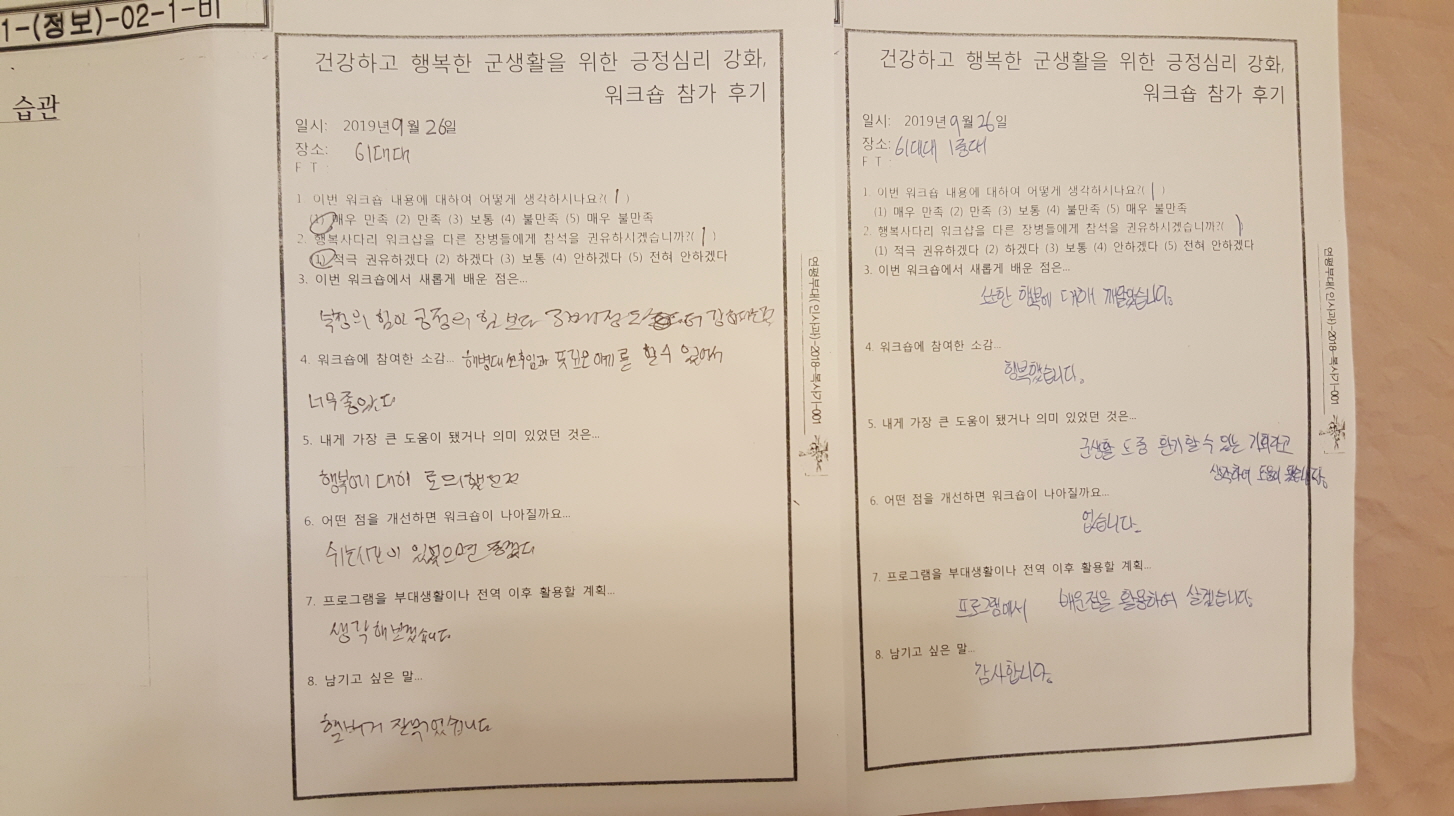 1-(정보)-02-1-비
습관
건강하고 행복한 군생활을 위한 긍정심리 강화,
워크숍 참가 후기
일시: 2019년 9월 26일
장소: 61대대
F T :
1. 이번 워크숍 내용에 대하여 어떻게 생각하시나요?( 1 )
(1) 매우 만족 (2) 만족 (3) 보통 (4) 불만족 (5) 매우 불만족
2. 행복사다리 워크샵을 다른 장병들에게 참석을 권유하시겠습니까?( 1 )
(1) 적극 권유하겠다 (2) 하겠다 (3) 보통 (4) 안하겠다 (5) 전혀 안하겠다
3. 이번 워크숍에서 새롭게 배운 점은...
힘이 긍정의 힘 보다 3배정도 더 강하다는것
4. 워크숍에 참여한 소감... 해병대 선후임과 뜻깊은 얘기를 할 수 있어서
너무 좋았다
5. 내게 가장 큰 도움이 됐거나 의미 있었던 것은...
행복에 대해 토의했던것
6. 어떤 점을 개선하면 워크숍이 나아질까요...
쉬는시간이 있었으면 좋겠다
7. 프로그램을 부대생활이나 전역 이후 활용할 계획...
생각해보겠습니다
8. 남기고 싶은 말...
햄버거 잘먹었습니다
연평부대(인사과)-2018-복사기-001
건강하고 행복한 군생활을 위한 긍정심리 강화,
워크숍 참가 후기
일시: 2019년 9월 26일
장소: 61대대 1중대
F T :
1. 이번 워크숍 내용에 대하여 어떻게 생각하시나요?( 1 )
(1) 매우 만족 (2) 만족 (3) 보통 (4) 불만족 (5) 매우 불만족
2. 행복사다리 워크샵을 다른 장병들에게 참석을 권유하시겠습니까?( 1 )
(1) 적극 권유하겠다 (2) 하겠다 (3) 보통 (4) 안하겠다 (5) 전혀 안하겠다
3. 이번 워크숍에서 새롭게 배운 점은...
소소한 행복에 대해 깨달았습니다.
4. 워크숍에 참여한 소감...
행복했습니다.
5. 내게 가장 큰 도움이 됐거나 의미 있었던 것은...
군생활 도중 환기할 수 있는 기회라고
생각하여 도움이 됐습니다.
6. 어떤 점을 개선하면 워크숍이 나아질까요...
없습니다.
7. 프로그램을 부대생활이나 전역 이후 활용할 계획...
프로그램에서 배운점을 활용하여 살겠습니다.
8. 남기고 싶은 말...
감사합니다.
연평부대(인사과)-2018-복사기-001